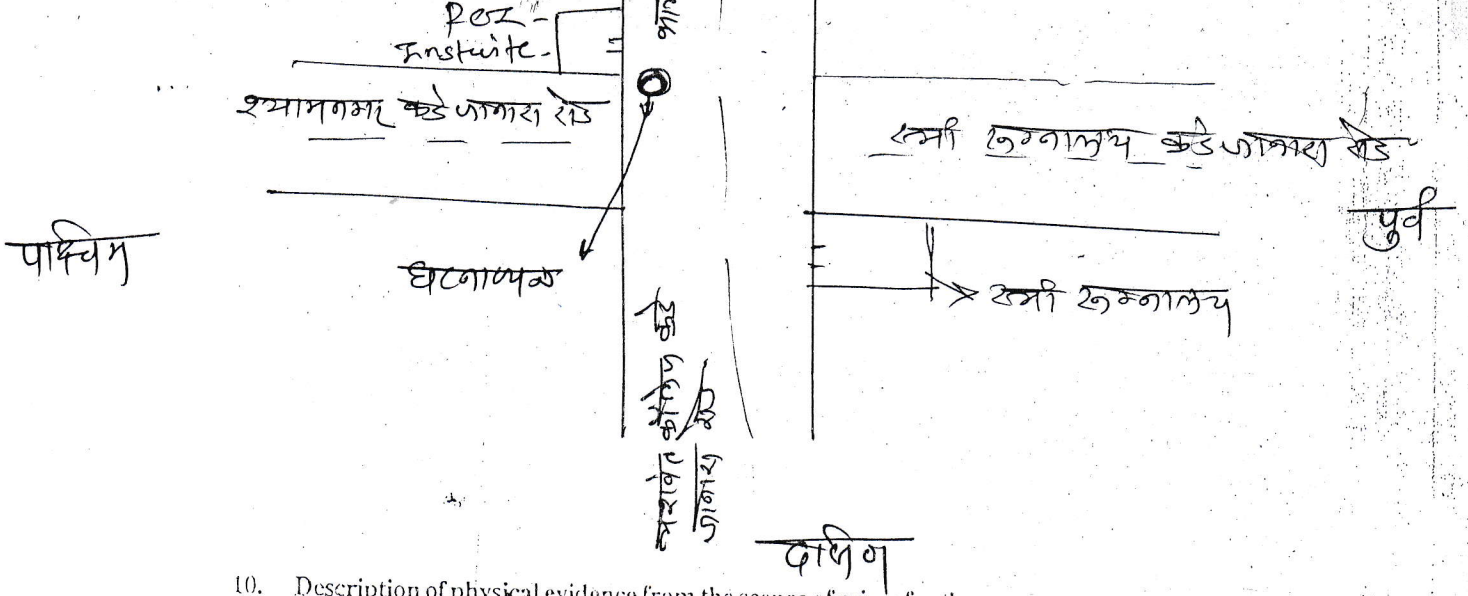 Rez-
Instuite-
श्यामनगर कडे जानारा रोड
स्त्री रुग्नालय कडे जानारा रोड
पाश्चिम
पुर्व
घटनास्थळ
स्त्री रुग्नालय
कॉलेज कडे
जानारा रोड
दक्षिण
10. Description of physical evidence from the